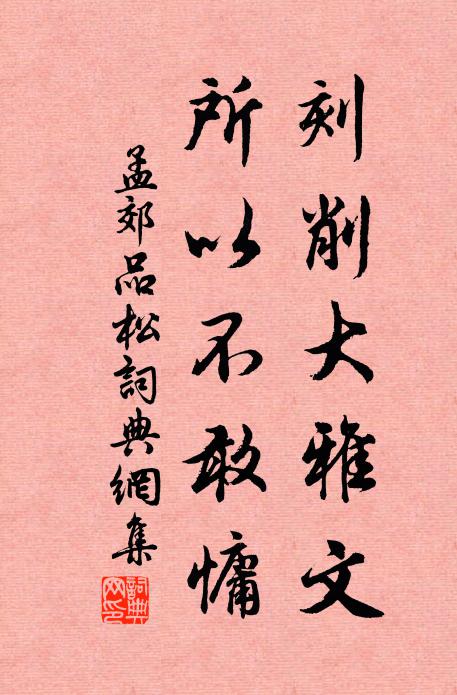 刻削大雅文
所以不敢慵
孟郊品松詞典網集
詞典網印